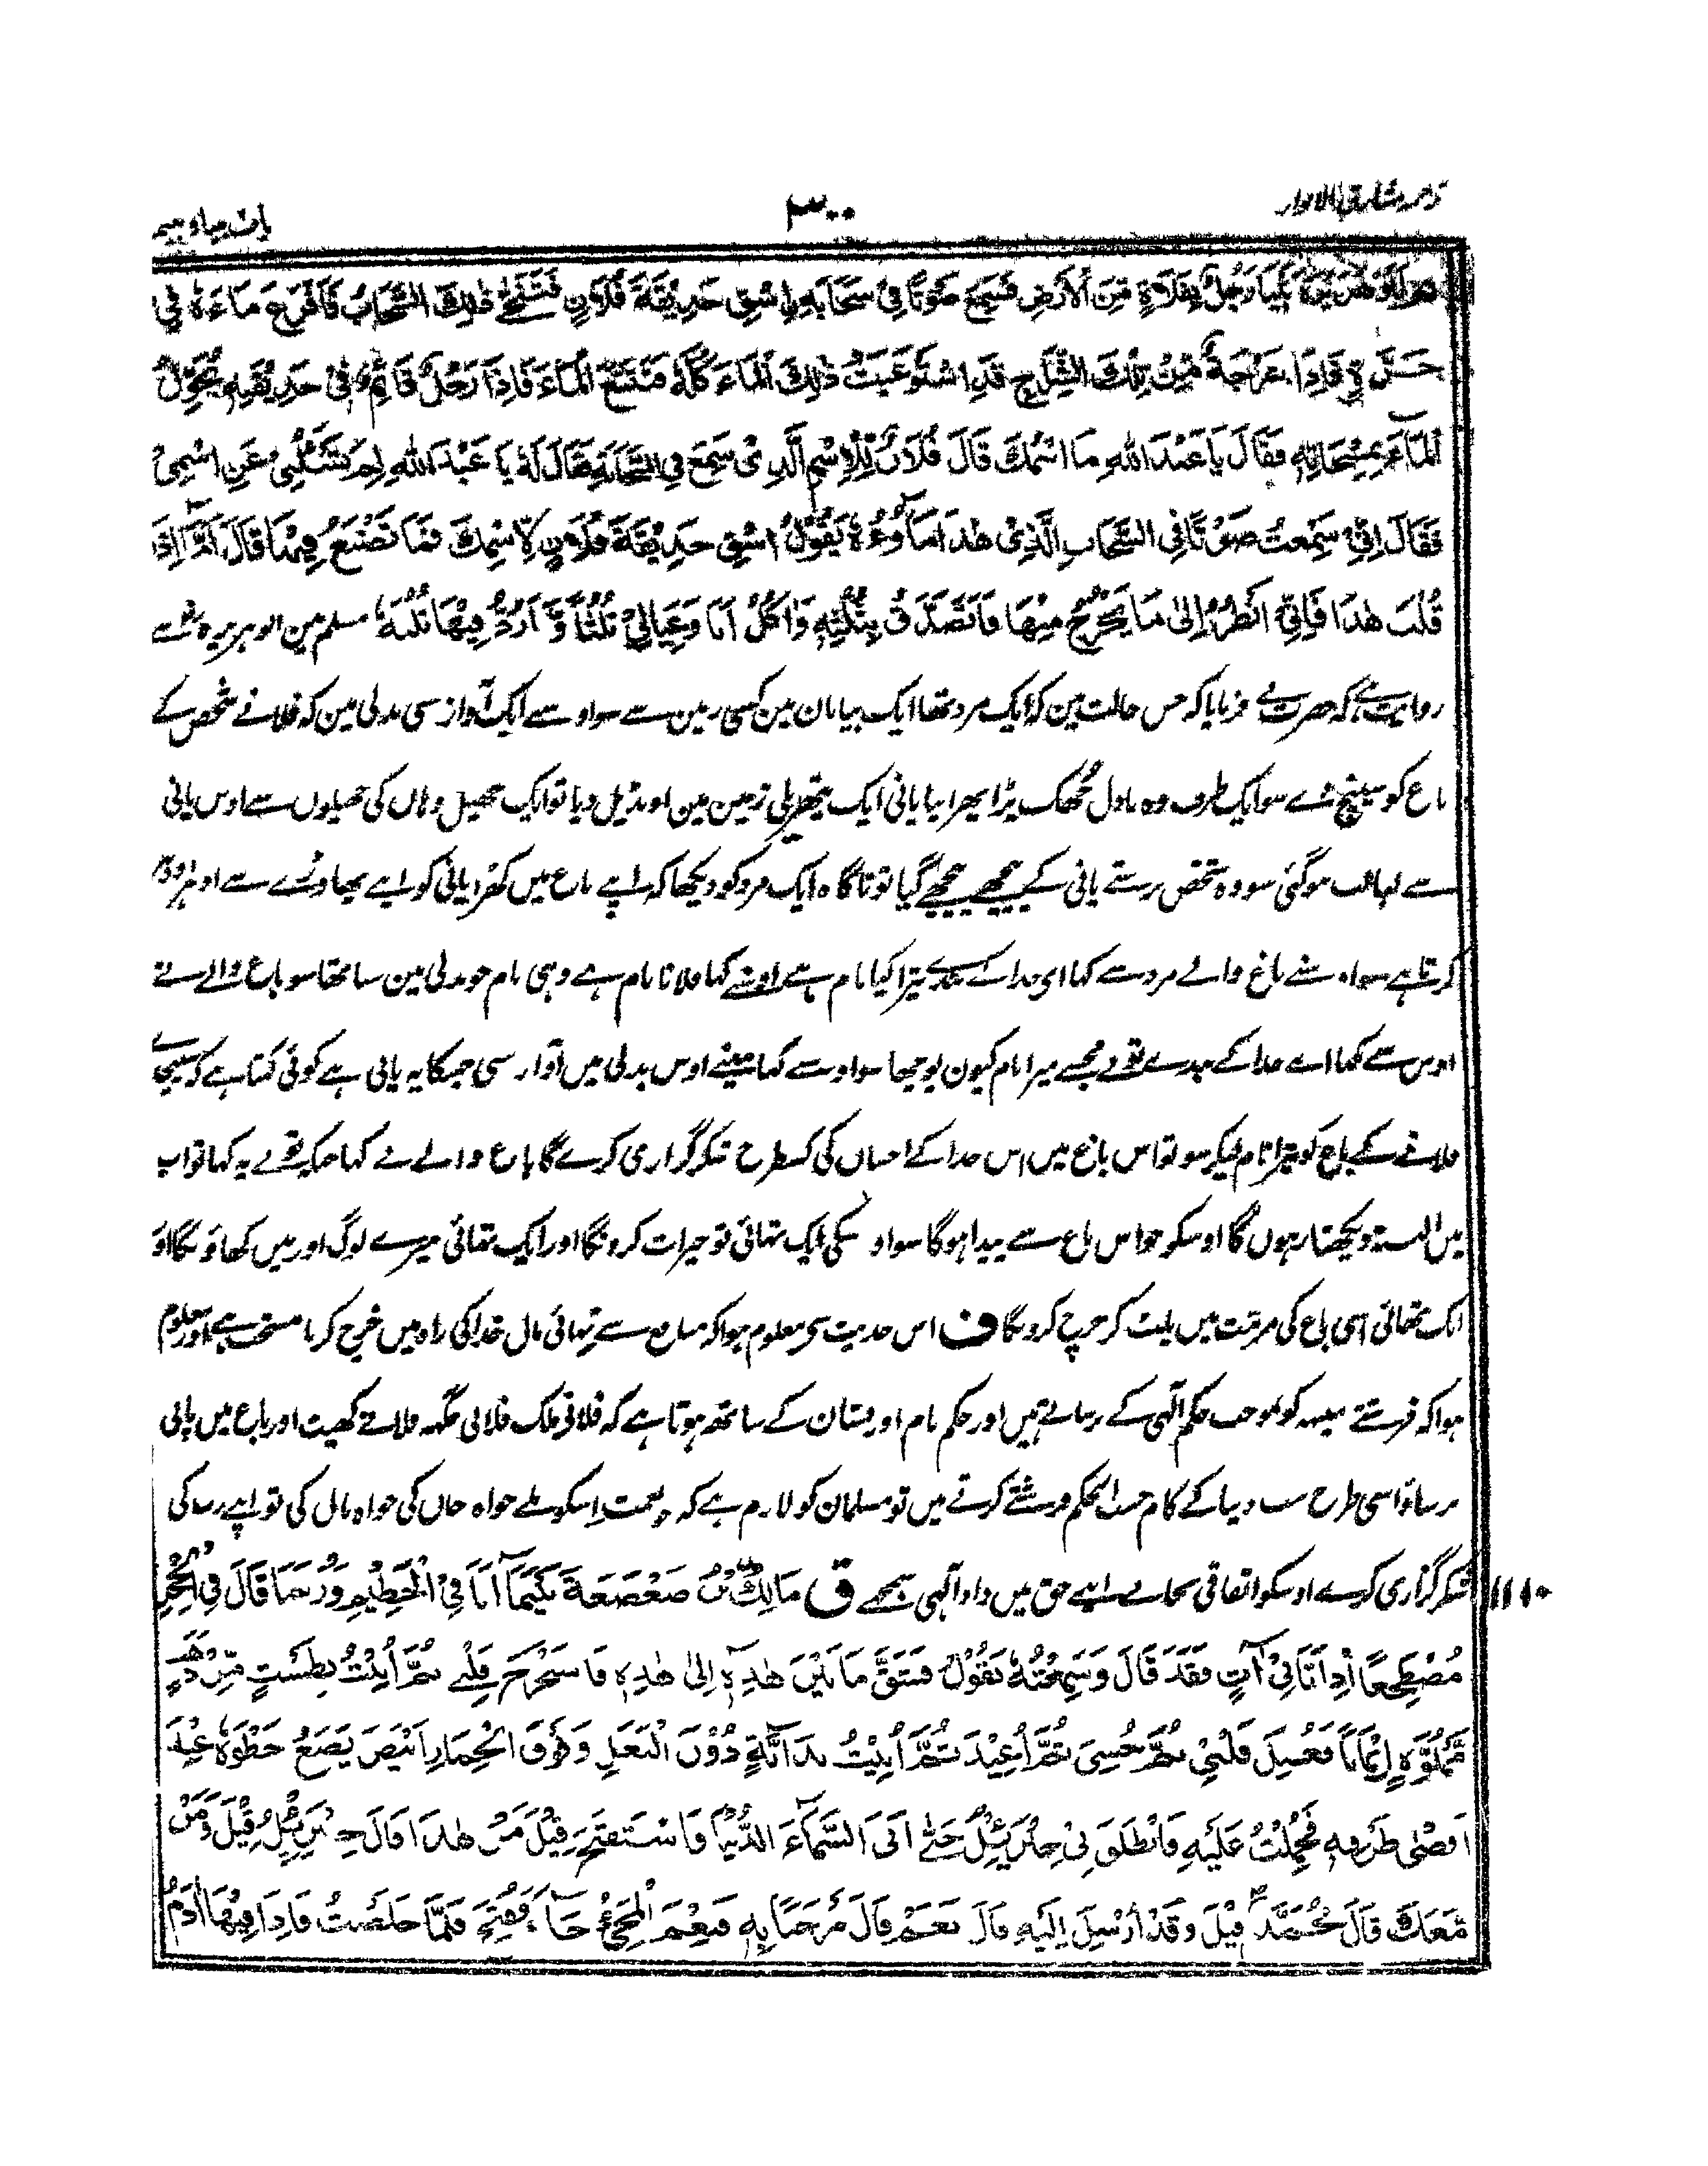 ترجمہ مشارق الانوار ۳۰۰ باب
بَيْنَمَا رَجُلٌ بِفَلَاةٍ مِّنَ الْاَرْضِ فَسَمِعَ صَوْتًا فِيْ سَحَابَةٍ اِسْقِ حَدِيْقَةَ فُلَانٍ فَتَنَحّٰى ذٰلِكَ السَّحَابُ فَاَفْرَغَ مَاءَهٗ فِيْ
حَرَّةٍ فَاِذَا شَرْجَةٌ مِّنْ تِلْكَ الشِّرَاجِ قَدِ اسْتَوْعَبَتْ ذٰلِكَ الْمَاءَ كُلَّهٗ فَتَتَبَّعَ الْمَاءَ فَاِذَا رَجُلٌ قَائِمٌ فِيْ حَدِيْقَتِهٖ يُحَوِّلُ
الْمَآءَ بِمِسْحَاتِهٖ فَقَالَ يَا عَبْدَ اللهِ مَا اسْمُكَ قَالَ فُلَانٌ لِلْاِسْمِ الَّذِيْ سَمِعَ فِي السَّحَابَةِ فَقَالَ لَهٗ يَا عَبْدَ اللهِ لِمَ تَسْئَلُنِيْ عَنِ اسْمِيْ
فَقَالَ اِنِّيْ سَمِعْتُ صَوْتًا فِي السَّحَابِ الَّذِيْ هٰذَا مَآؤُهٗ يَقُوْلُ اسْقِ حَدِيْقَةَ فُلَانٍ لِاسْمِكَ فَمَا تَصْنَعُ فِيْهَا قَالَ اَمَّا اِذَا
قُلْتَ هٰذَا فَاِنِّيْ اَنْظُرُ اِلٰى مَا يَخْرُجُ مِنْهَا فَاَتَصَدَّقُ بِثُلُثِهٖ وَاٰكُلُ اَنَا وَعِيَالِيْ ثُلُثًا وَّاَرُدُّ فِيْهَا ثُلُثَهٗ مسلم مین ابو ہریرہ سے
روایت ہے کہ حضرت نے فرمایا کہ جس حالت مین کہ ایک مرد تھا ایک بیابان مین کسی زمین سے سو اوسے ایک آواز سنی بدلی مین کہ فلانے شخص کے
باغ کو سینچ دے سو ایک طرف وہ بادل جھک پڑا پھر اپنا پانی ایک پتھریلی زمین مین اونڈیل دیا تو ایک جھیل وہاں کی جھیلوں سے اوس پانی
سے لبالب ہو گئی سو وہ شخص برستے پانی کے پیچھے پیچھے گیا تو ناگاہ ایک مرد کو دیکھا کہ اپنے باغ میں کھڑا پانی کو اپنے پھاوڑے سے ادہر اودہر
کرتا ہے سو اوسنے باغ والے مرد سے کہا ای خدا کے بندے تیرا کیا نام ہے اوسنے کہا فلانا نام ہے وہی نام جو بدلی مین سنا تھا سو باغ والے نے
اوس سے کہا اے خدا کے بندے تونے مجھسے میرا نام کیون پوچھا سو اوسے کہا مینے اوس بدلی میں آواز سنی جسکا یہ پانی ہے کوئی کہتا ہے کہ سینچدے
فلانے کے باغ کو تیرا نام لیکر سو تو اس باغ میں اس خدا کے احسان کی کسطرح شکر گزاری کرے گا باغ والے نے کہا جبکہ تونے یہ کہا تو اب
میں البتہ دیکھتا رہوں گا اوسکو جو اس باغ سے پیدا ہوگا سو اوسکی ایک تہائی تو خیرات کرونگا اور ایک تہائی میرے لوگ اور میں کھاؤنگا اور
ایک تہائی اسی باغ کی مرمت میں پلٹ کر خرچ کرونگا ف اس حدیث سے معلوم ہوا کہ منافع سے تہائی مال خدا کی راہ میں خرچ کرنا مستحب ہے اور معلوم
ہوا کہ فرشتے مینہہ کو بموجب حکم آلہی کے برساتے ہیں اور حکم نام اور نشان کے ساتھ ہوتا ہے کہ فلانے ملک فلانی جگہہ فلانے کھیت اور باغ میں پانی
برساؤ اسی طرح سب دنیا کے کام حسب الحکم فرشتے کرتے ہیں تو مسلمان کو لازم ہے کہ جو نعمت اسکو ملے خواہ جان کی خواہ مال کی تو اپنے رب کی
شکر گزاری کرے اوسکو اتفاقی نجانے اپنے حق میں داد آلہی سمجھے ق مَالِكُ بْنُ صَعْصَعَةَ بَيْنَمَآ اَنَا فِي الْحَطِيْمِ وَرُبَمَا قَالَ فِي الْحِجْرِ ۱۱۱۰
مُضْطَجِعًا اِذْ اَتَانِيْ اٰتٍ فَقَدَّ قَالَ وَسَمِعْتُهٗ يَقُوْلُ فَشَقَّ مَا بَيْنَ هٰذِهٖ اِلٰى هٰذِهٖ فَاسْتَخْرَجَ قَلْبِيْ ثُمَّ اُتِيْتُ بِطَسْتٍ مِّنْ ذَهَبٍ
مَّمْلُوَّةٍ اِيْمَانًا فَغُسِلَ قَلْبِيْ ثُمَّ حُشِيَ ثُمَّ اُعِيْدَ ثُمَّ اُتِيْتُ بِدَآبَّةٍ دُوْنَ الْبَغْلِ وَفَوْقَ الْحِمَارِ اَبْيَضَ يَضَعُ خَطْوَهٗ عِنْدَ
اَقْصٰى طَرْفِهٖ فَحُمِلْتُ عَلَيْهِ فَانْطَلَقَ بِيْ جِبْرَئِيْلُ حَتّٰى اَتَى السَّمَآءَ الدُّنْيَا فَاسْتَفْتَحَ قِيْلَ مَنْ هٰذَا قَالَ جِبْرَئِيْلُ قِيْلَ وَمَنْ
مَّعَكَ قَالَ مُحَمَّدٌ قِيْلَ وَقَدْ اُرْسِلَ اِلَيْهِ قَالَ نَعَمْ قَالَ مَرْحَبًا بِهٖ فَنِعْمَ الْمَجِيْئُ جَآءَ فَفُتِحَ فَلَمَّا خَلَصْتُ فَاِذَا فِيْهَا اٰدَمُ